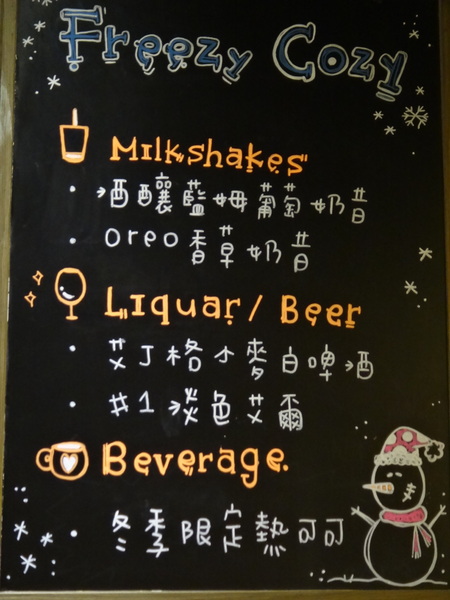 Freezy Cozy
Milkshakes
• 酒釀藍姆葡萄奶昔
• oreo香草奶昔
Liquar/ Beer
• 艾丁格小麥白啤酒
• #1淡色艾爾
Beverage.
• 冬季限定熱可可